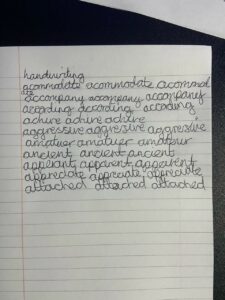 handwriting
acommodate acommodate acommod
accompany accompany accompany
according according according
achive achive achive
aggressive aggressive aggressive
amatuer amatuer amateur
ancient ancient ancient
apparant apparent apparent
appreciate appreciate appreciate
attached attached attached